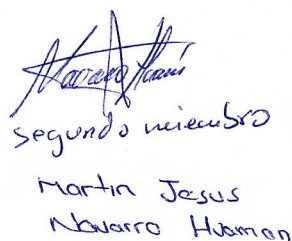 segundo miembro
Martin Jesus
Navarro Huaman